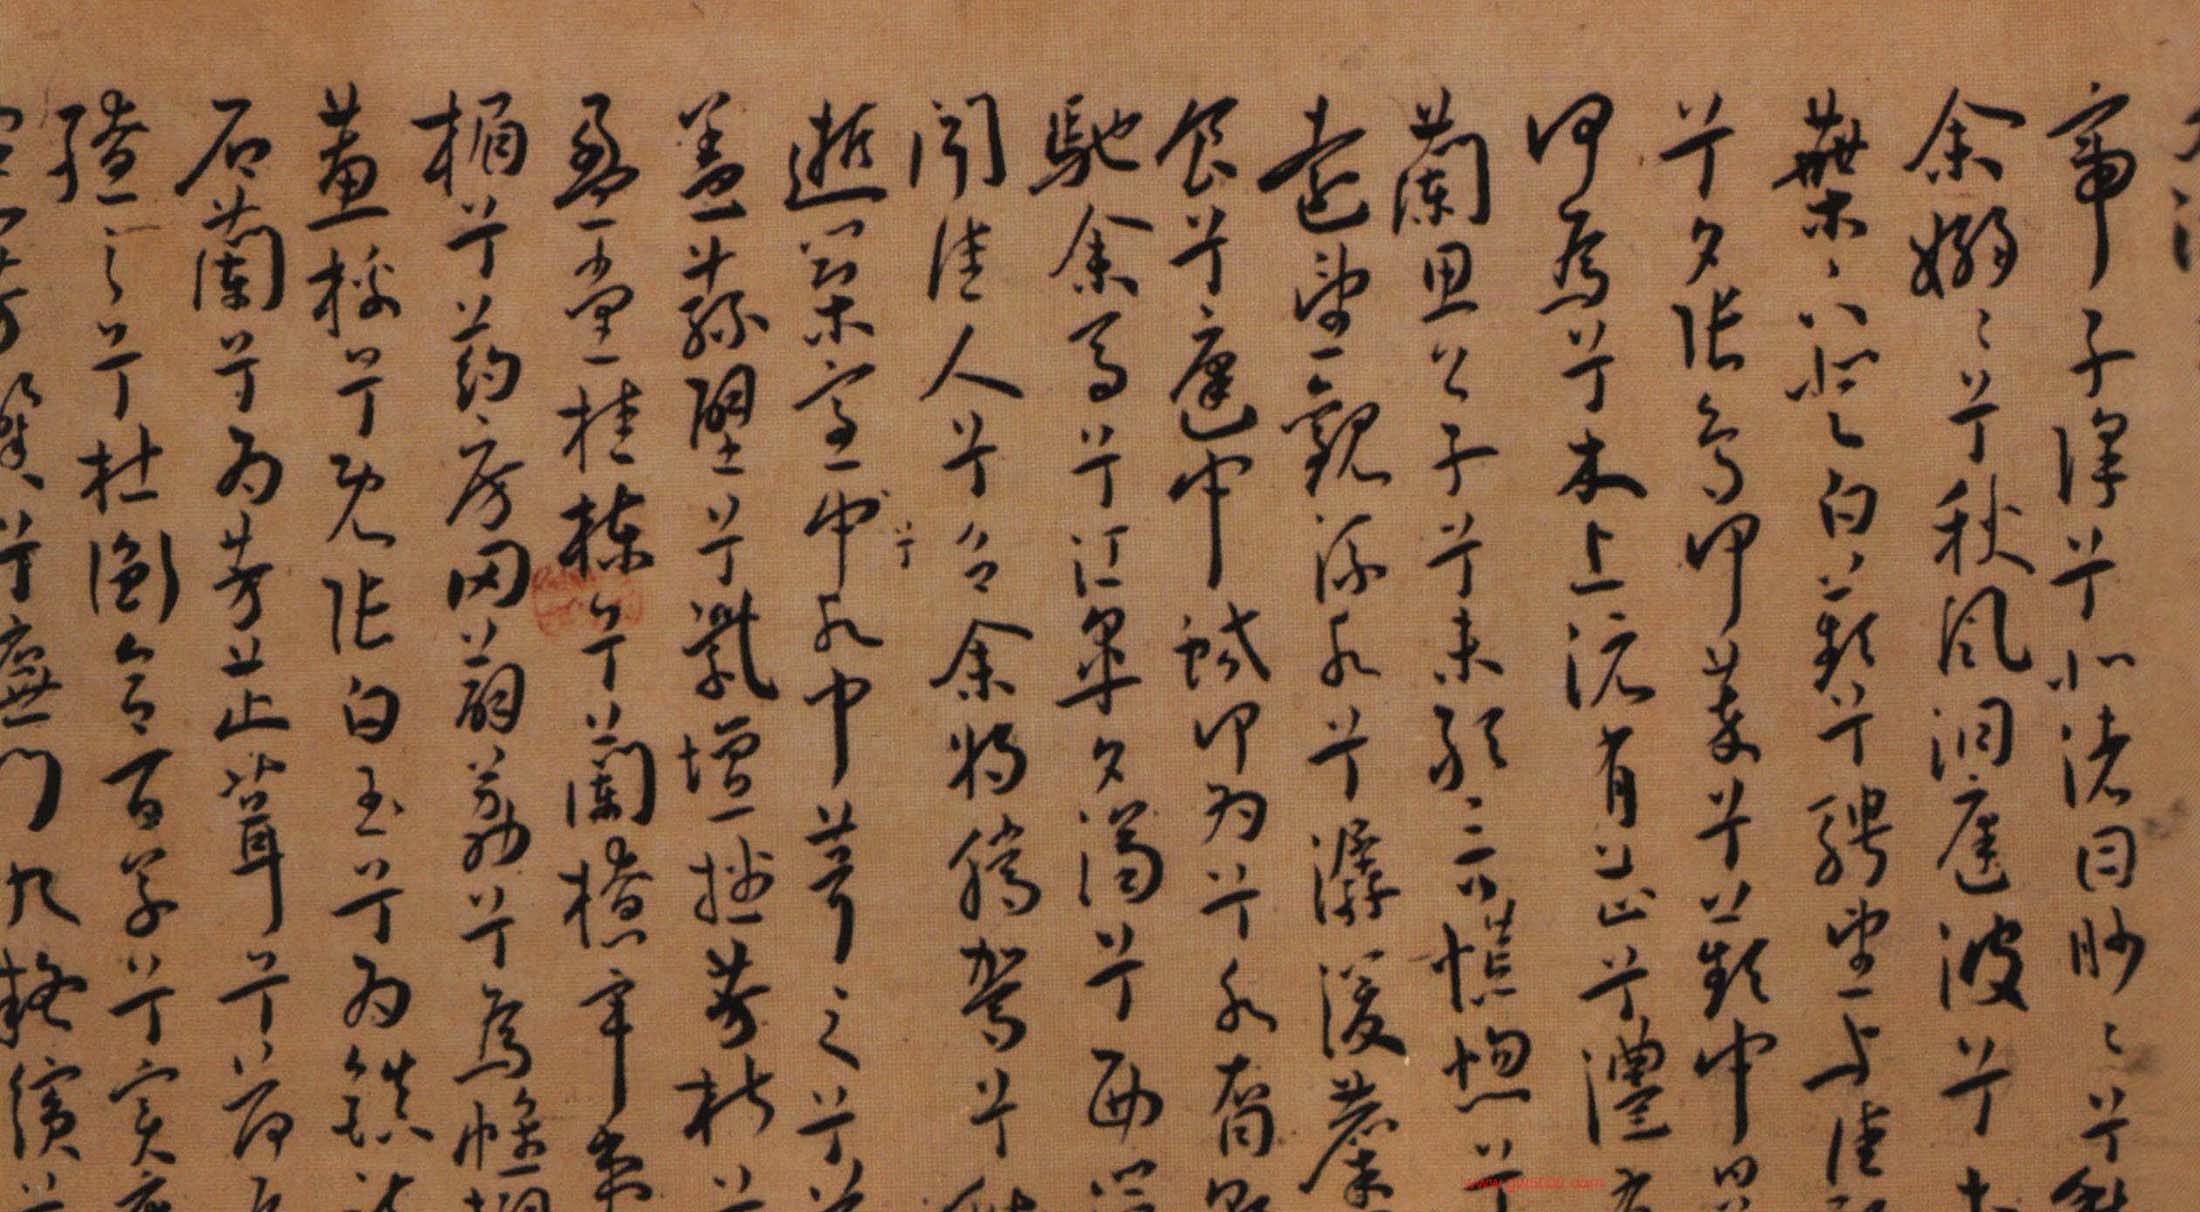 帝子降兮北渚目眇〻兮愁
余嫋〻兮秋風洞庭波兮木
葉下白薠兮騁望與佳期
兮夕張鳥何萃兮蘋中罾
何為兮木上沅有芷兮澧有
蘭思公子兮未敢言慌惚兮
遠望觀流水兮潺湲麋
食兮庭中蛟何為兮水裔朝
馳余馬兮江皋夕濟兮西澨
聞佳人兮召余將騰駕兮偕
逝築室兮中水中葺之兮荷
蓋蓀壁兮紫壇播芳椒兮
盈堂桂棟兮蘭橑辛夷
楣兮葯房罔薜荔兮為帷擗
蕙櫋兮既張白玉兮為鎮疏
石蘭兮為芳芷葺兮荷屋
繚之兮杜衡合百草兮實庭
建芳馨兮廡門九嶷繽兮